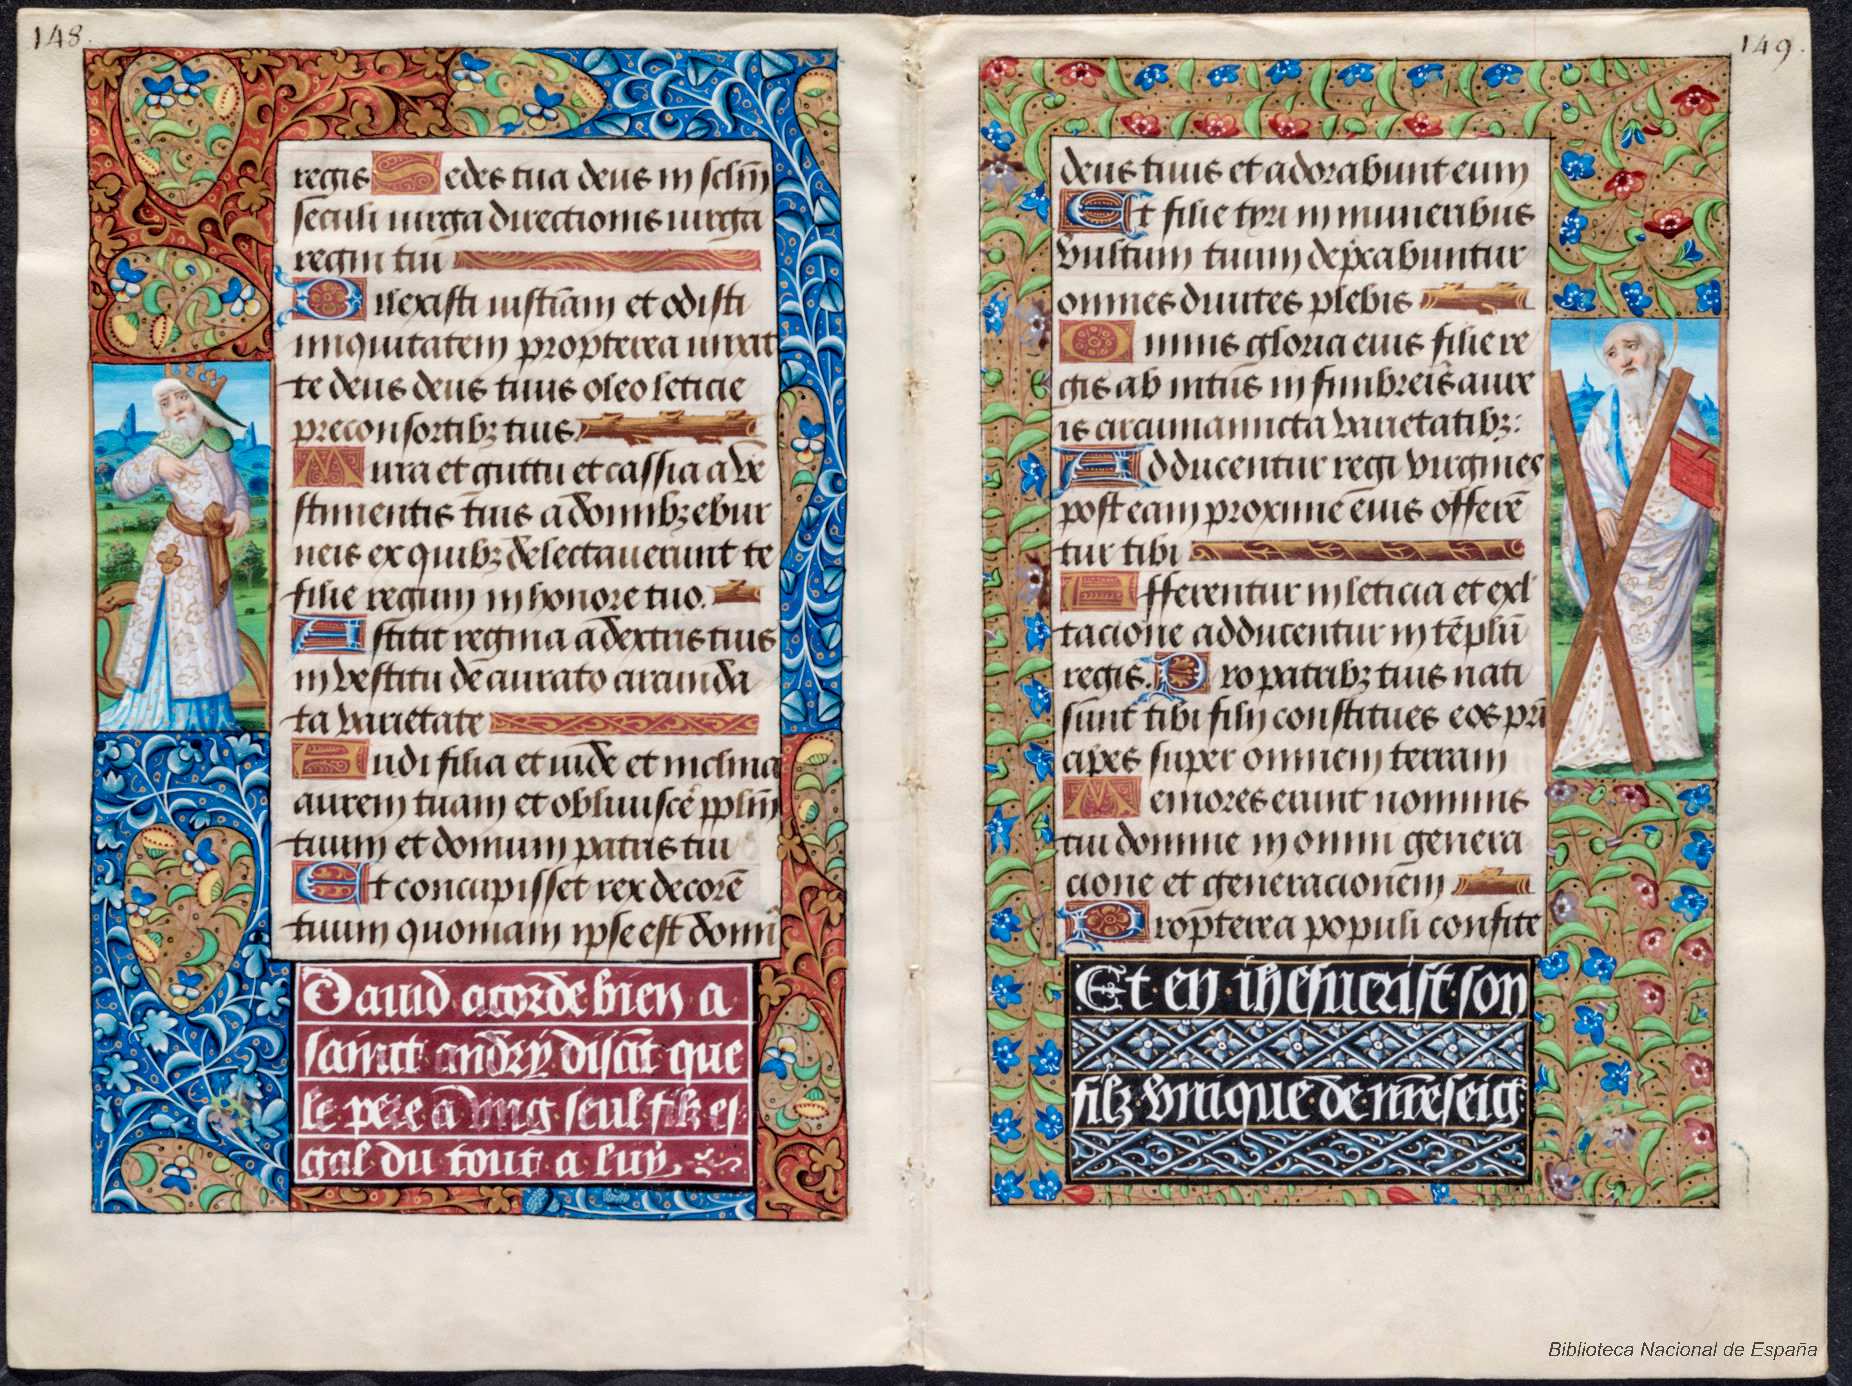 148.
regis Sedes tua deus in sclm̄
seculi uirga directionis uirga
regni tui
Dilexisti iustīam et odisti
iniquitatem propterea unxit
te deus deus tuus oleo leticie
preconsortibꝫ tuis
Mirra et guttu et cassia a ve
stimentis tuis a domibꝫ ebur
neis ex quibꝫ delectauerunt te
filie regum in honore tuo.
Astitit regina a dextris tuis
in vestitu deaurato circunda
ta varietate
Audi filia et uide et inclina
aurem tuam et obliuiscē pplm̄
tuum et domum patris tui
Et concupisset rex decorē
tuum quoniam ipse est domī
Dauid acorde bien a
sainct andry disāt que
le pere a vng seul filz es
gal du tout a luy
149.
deus tuus et adorabunt eum
Et filie tyri in muneribus
vultum tuum dep̄cabuntur
omnes diuites plebis
Omnis gloria eius filie re
gis ab intus in fimbreis aure
is circumamicta varietatibꝫ:
Adducentur regi virgines
post eam proxime eius offerē
tur tibi
Afferentur in leticia et exl
tacione adducentur in tēplū
regis. Pro patribꝫ tuis nati
sunt tibi filij constitues eos prī
cipes super omnem terram
Memores erunt nominis
tui domine in omni genera
cione et generacionem
Propterea populi confite
Et en ihesucrist son
filz vnique de nr̄e seig
Biblioteca Nacional de España